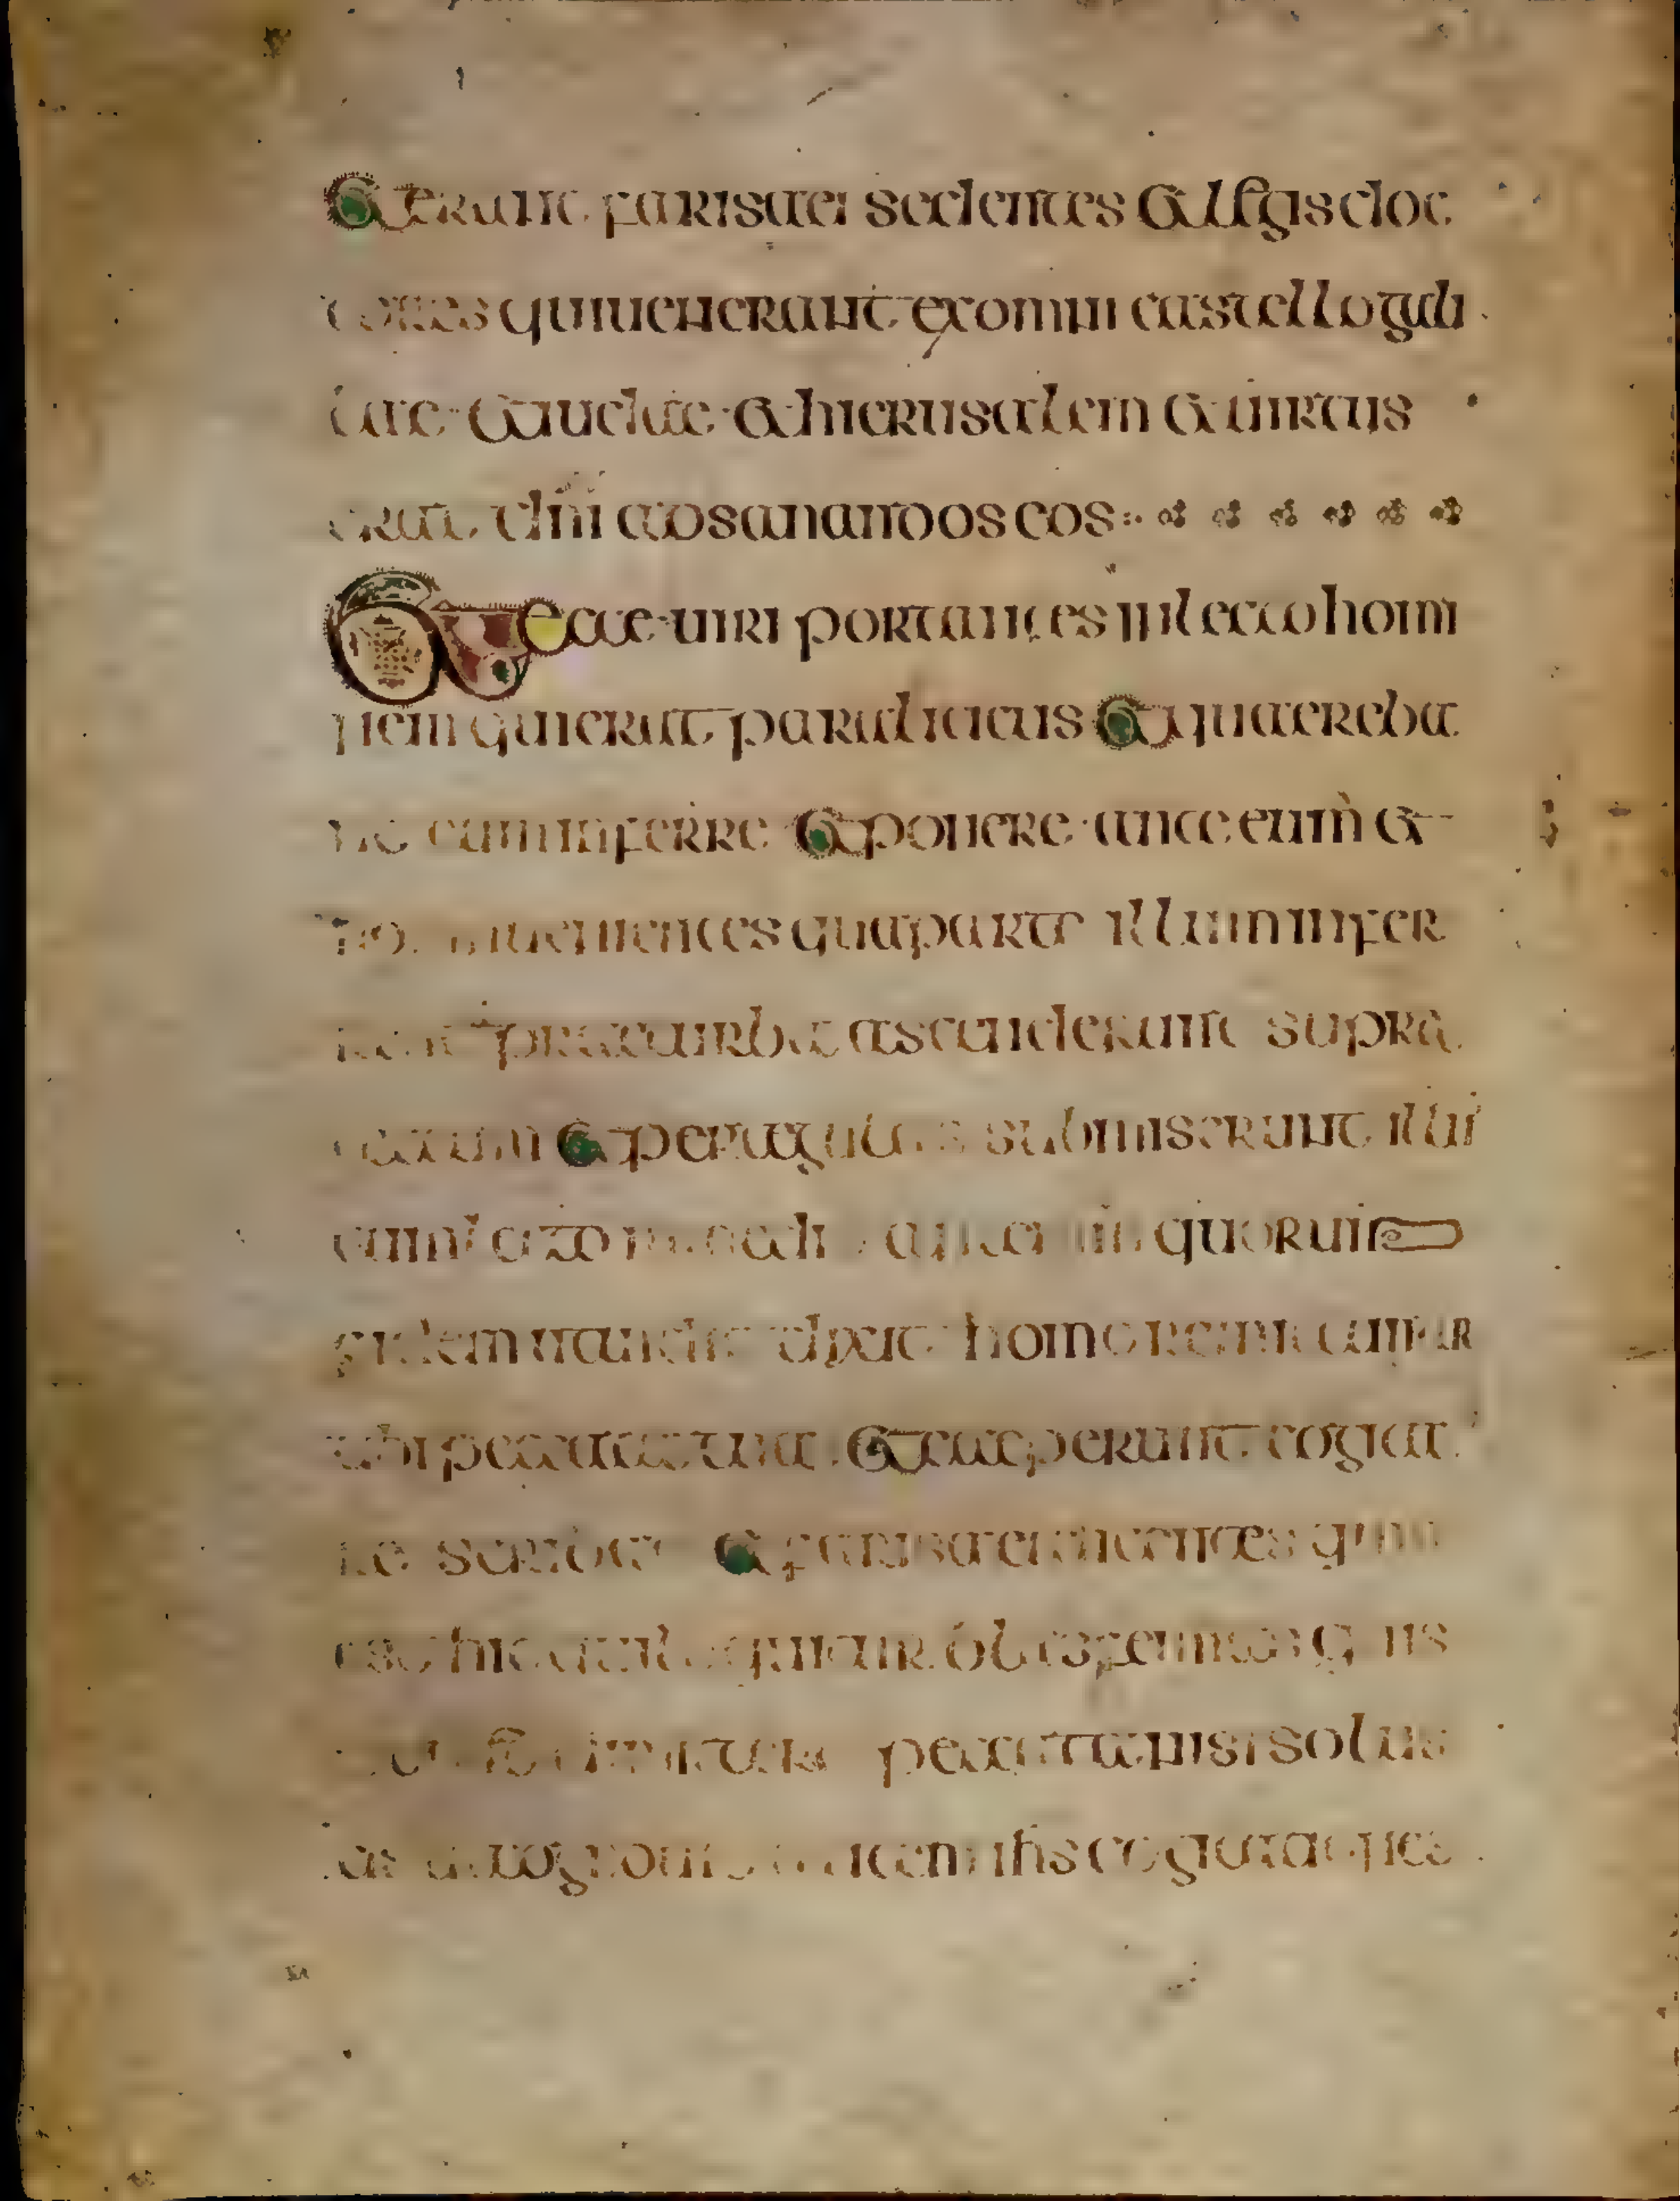 Et erant farisaei sedentes et legis doc
tores qui uenerant ex omni castello gali
laeae et iudae et hierusalem et uirtus
erat dni ad sanandos eos
Et ecce uiri portantes in lecto homi
nem qui erat paraliticus et quaereba
nt eum inferre et ponere ante eum et
non inuenientes qua parte illum infer
rent prae turba ascenderunt supra
tectum et per tegulas submiserunt illu
cum lecto in medium ante ihm quorum
fidem uidit dixit homo remittuntur
tibi peccata tua et coeperunt cogita
re scribae et farisaei dicentes quis
est hic qui loquitur blasfemias quis
potest dimittere peccata nisi solus
ds ut cognouit autem ihs cogitationes